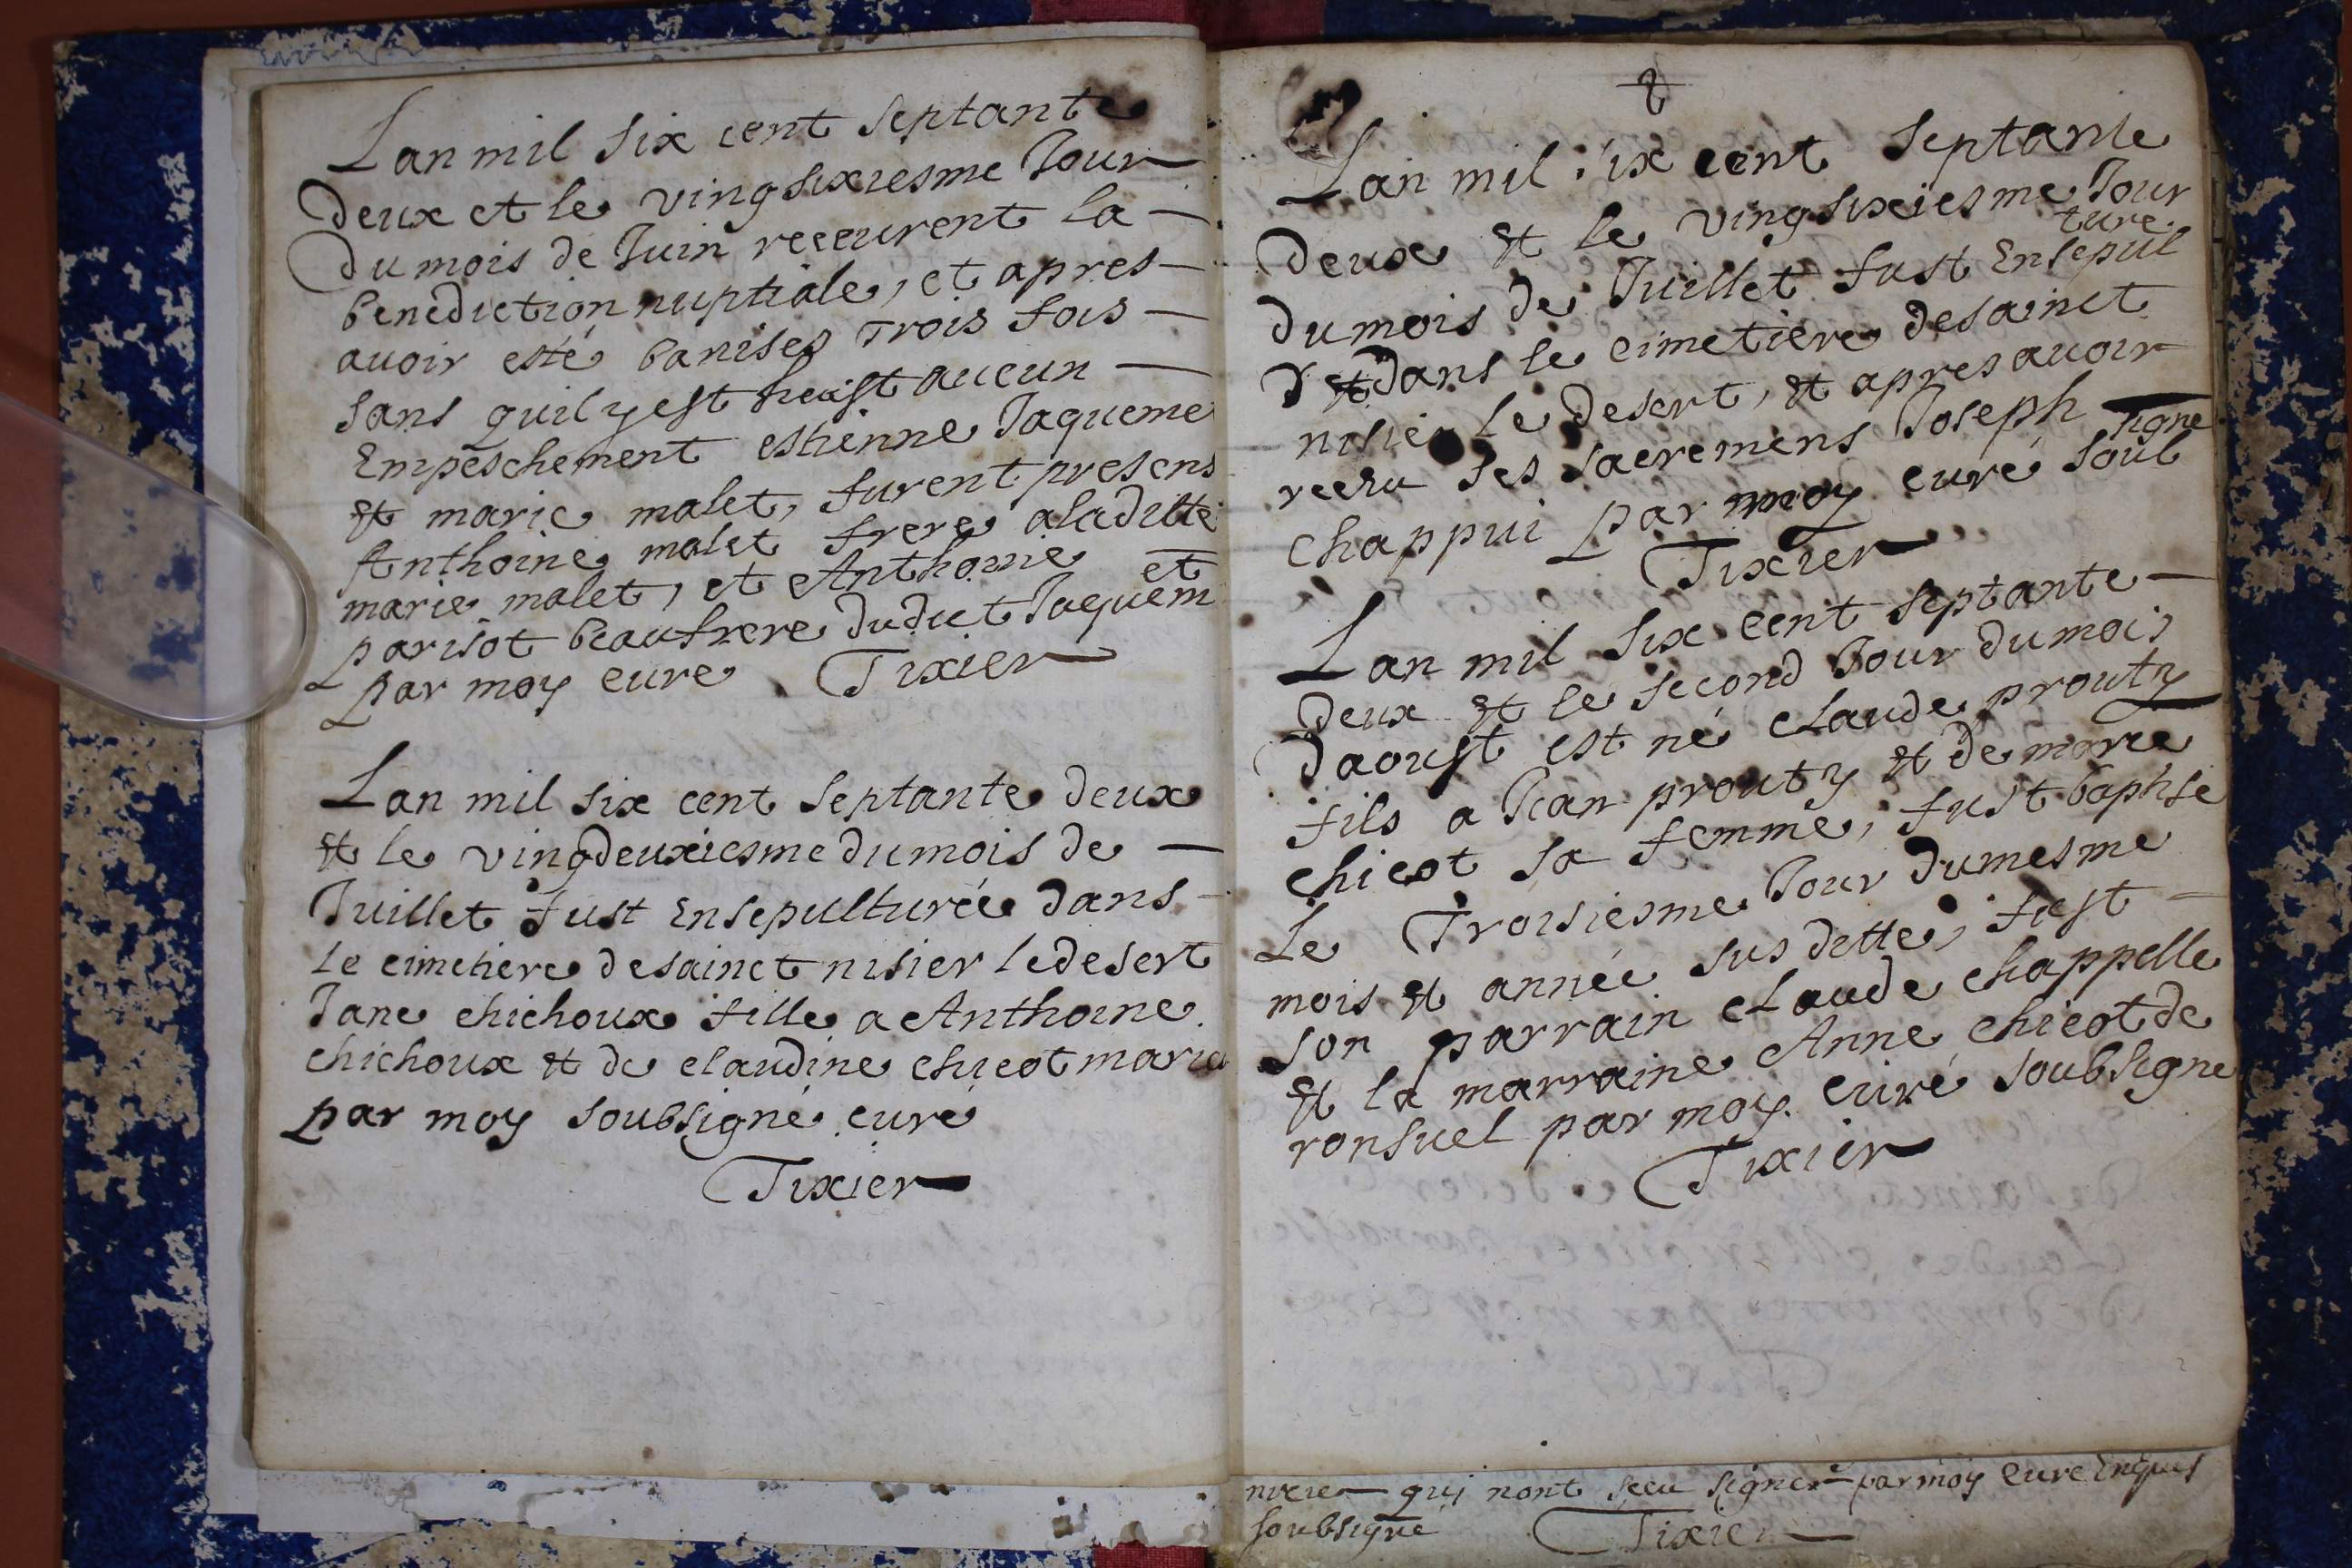 Lan mil six cent septante
deux et le vingsixiesme Jour
du mois de Juin receurent la
benediction nuptiale, et apres
avoir esté banises trois fois
sans quil y est heust aucun
Empeschement estienne Jaqueme
et marie malet, furent presens
Anthoine malet frere a laditte
marie malet, et Anthoine
parisot beaufrere dudict Jaquem et
par moy curé Tixier
Lan mil six cent septante deux
et le vingdeuxiesme du mois de
Juillet fust Ensepulturée dans
le cimetiere de sainct nisier le desert
Jane chichoux fille a Anthoine
chichoux et de claudine chicot maria
par moy soubsigné curé
Tixier
Lan mil six cent septante
deux et le vingsixiesme Jour
du mois de Juillet fust Ensepul
ture
et dans le cimetiere de sainct
nisier le desert, et apres avoir
receu ses sacremens Joseph
chappui par moy curé soub
signe
Tixier
Lan mil six cent septante
deux et le second Jour du mois
daoust est né claude prouty
fils a Jean prouty et de marie
chicot sa femme, fust baptise
Le Troisiesme Jour du mesme
mois et année sus ditte, fust
son parrain claude chappelle
et la marraine Anne chicot de
ronsuel par moy curé soubsigne
Tixier
qui nont sceu signer par moy curé
soubsigné Tixier